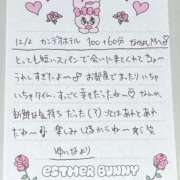 12/2 カンデオホテル 100+60分
とっても短いスパンで会いに来てくれてちょー
うれしすぎたよー♡ お部屋でまったりいちゃ
いちゃタイム、すっごく幸せだったね♡ なんか、
新鮮な気持ちだった(?) 次はあれとあれ
だねー 楽しみにしてるからねー
ゆいなより
ESTHER BUNNY